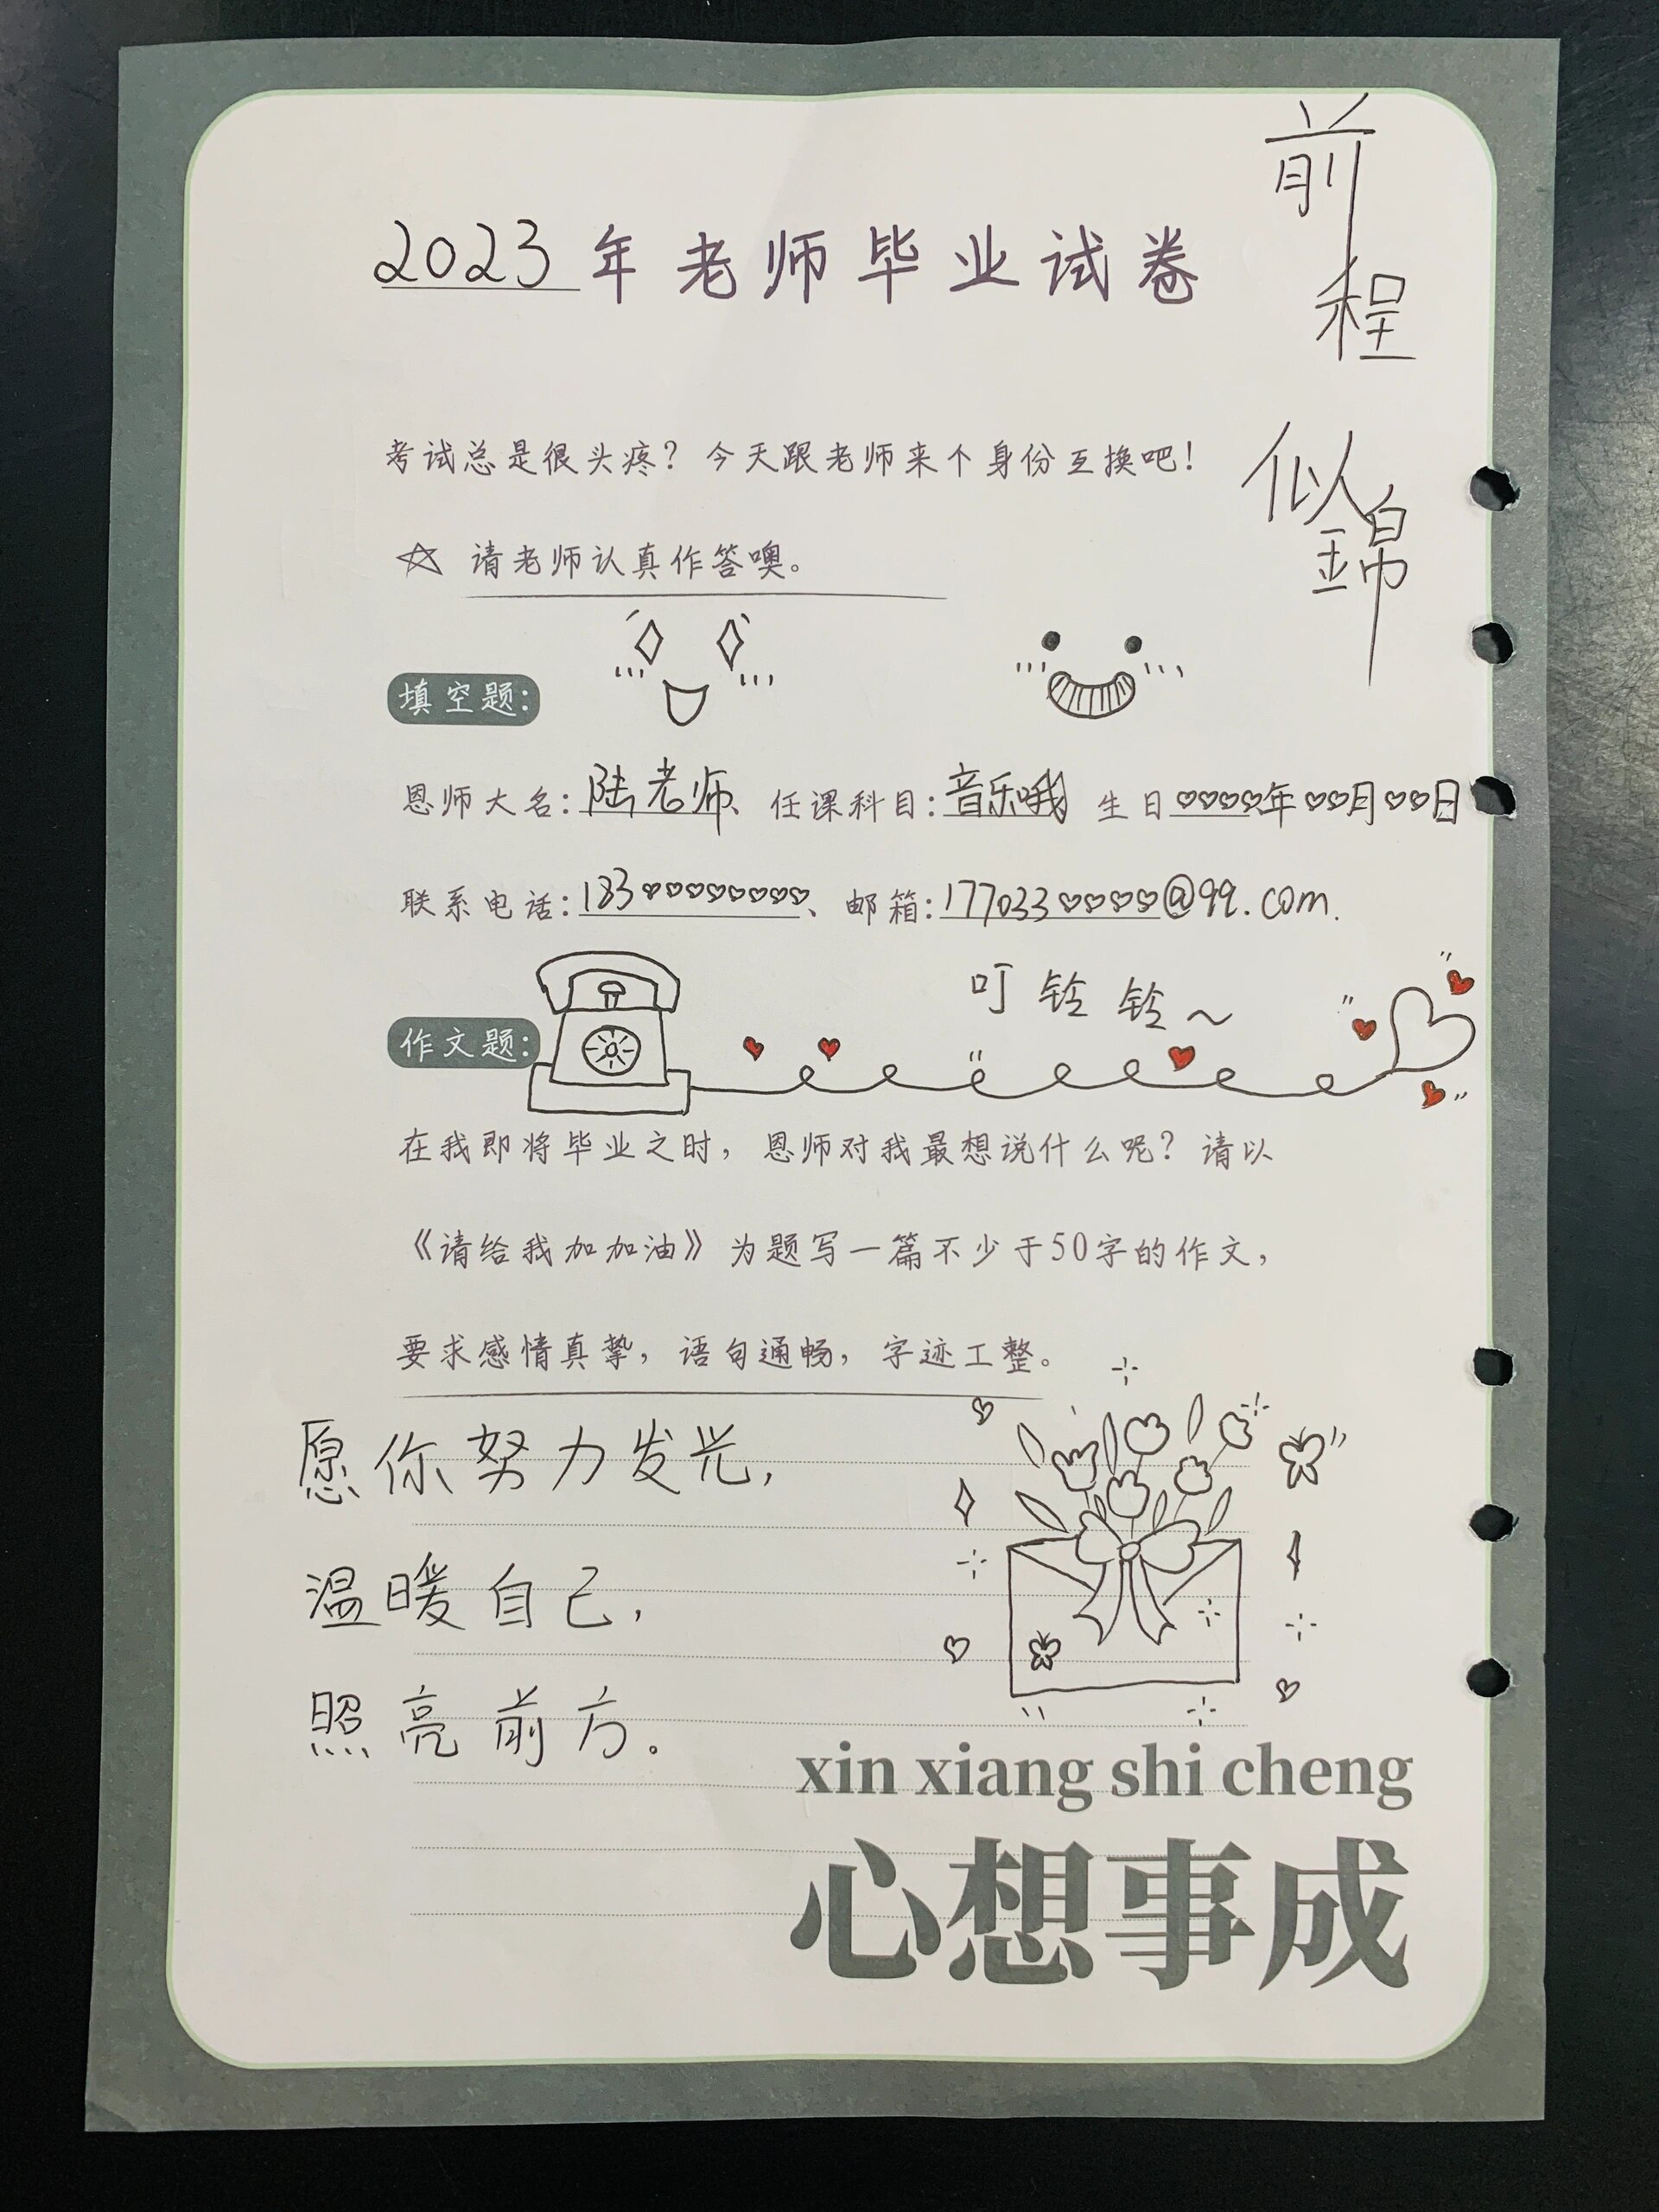 前程似锦
2023年老师毕业试卷
考试总是很头疼？今天跟老师来个身份互换吧！
☆ 请老师认真作答噢。
填空题：
恩师大名：陆老师、任课科目：音乐哦 生日♡♡♡♡年♡♡月♡♡日
联系电话：183♡♡♡♡♡♡♡♡、邮箱：177033♡♡♡♡@qq.com.
叮铃铃～
作文题：
在我即将毕业之时，恩师对我最想说什么呢？请以
《请给我加加油》为题写一篇不少于50字的作文，
要求感情真挚，语句通畅，字迹工整。
愿你努力发光，
温暖自己，
照亮前方。
xin xiang shi cheng
心想事成